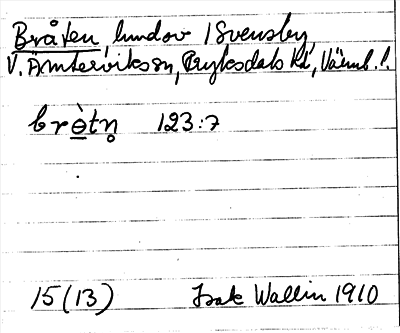 Bråten, under 1 Svensby,
V. Ämterviks sn, Fryksdals hd, Värml. l.
bròtn̥ 123:7
15 (13) Isak Wallin 1910